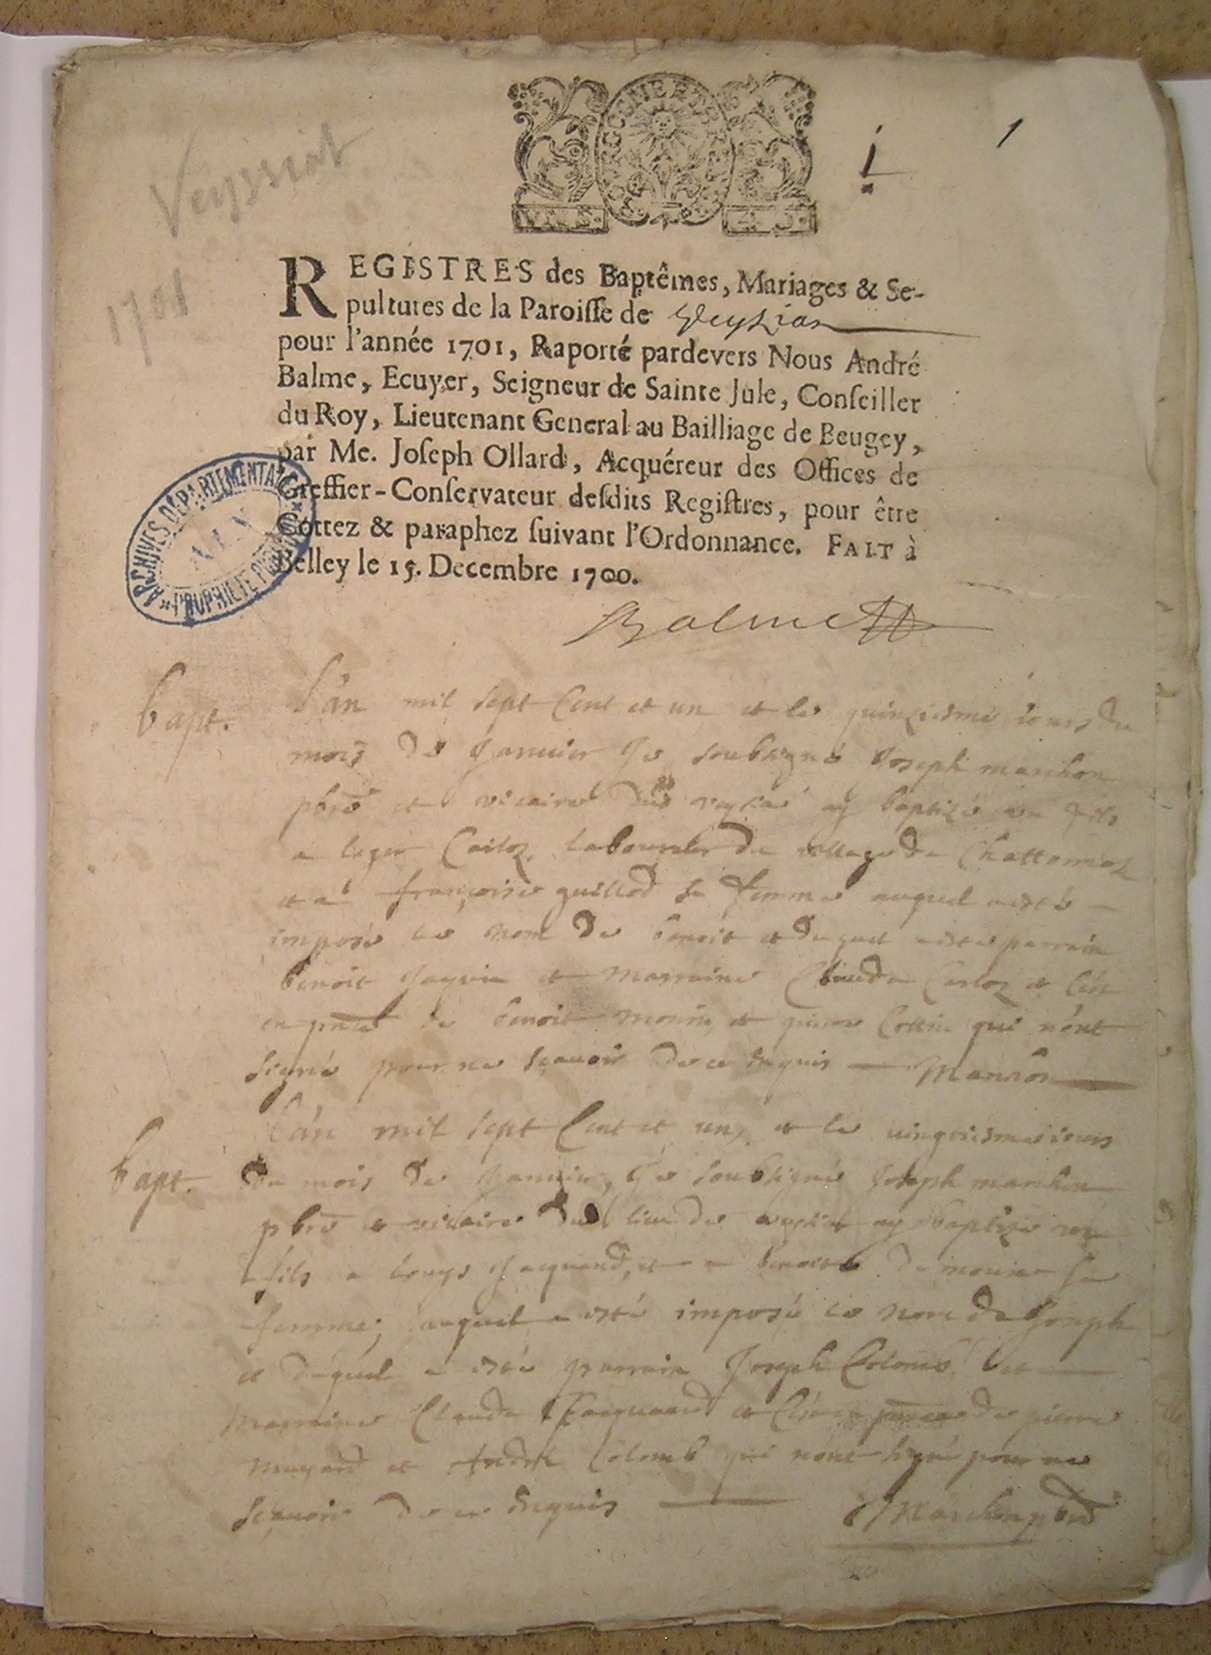 GENERA
VIN S.
4. S.
1
1
Veyssiat
1701
REGISTRES des Baptêmes, Mariages & Se-
pultures de la Paroisse de Veyzias
pour l'année 1701, Raporté pardevers Nous André
Balme, Ecuyer, Seigneur de Sainte Jule, Conseiller
du Roy, Lieutenant General au Bailliage de Beugey,
par Me. Joseph Ollard, Acquéreur des Offices de
Greffier-Conservateur desdits Registres, pour être
Cottez & paraphez suivant l'Ordonnance. FAIT à
Belley le 15. Decembre 1700.
ARCHIVES DÉPARTEMENTALES
AIN
PROPRIÉTÉ PUBLIQUE
Balme
bapt.
L'an mil sept Cent et un et le quinziesme iours du
mois de Januier Je soubsigné Joseph marchon
pbre et vicaire de ay baptizé un fils
a leger Carloz laboureur du village de Chattonax
et a françoise guillod sa femme auquel a esté
imposé le nom de benoit et duquel a esté parrain
benoit Jaquin et marraine Clauda Carloz et c'est
en pnce de benoit monin et pierre Cottin qui n'ont
signé pour ne sçauoir de ce enquis Marchon
bapt.
L'an mil sept Cent et un, et le uingtiesme iours
du mois de Januier, Je soubsigné Joseph marchon
pbre et vicaire du lieu de ay baptizé un
fils a louys Jacquand, et a benoite sa
femme; auquel a esté imposé le nom de Joseph
et duquel a esté parrain Joseph Colomb et
marraine Clauda Jacquand et c'est en pnce de pierre
et André Colomb qui n'ont signé pour ne
sçauoir de ce enquis Marchon pbre